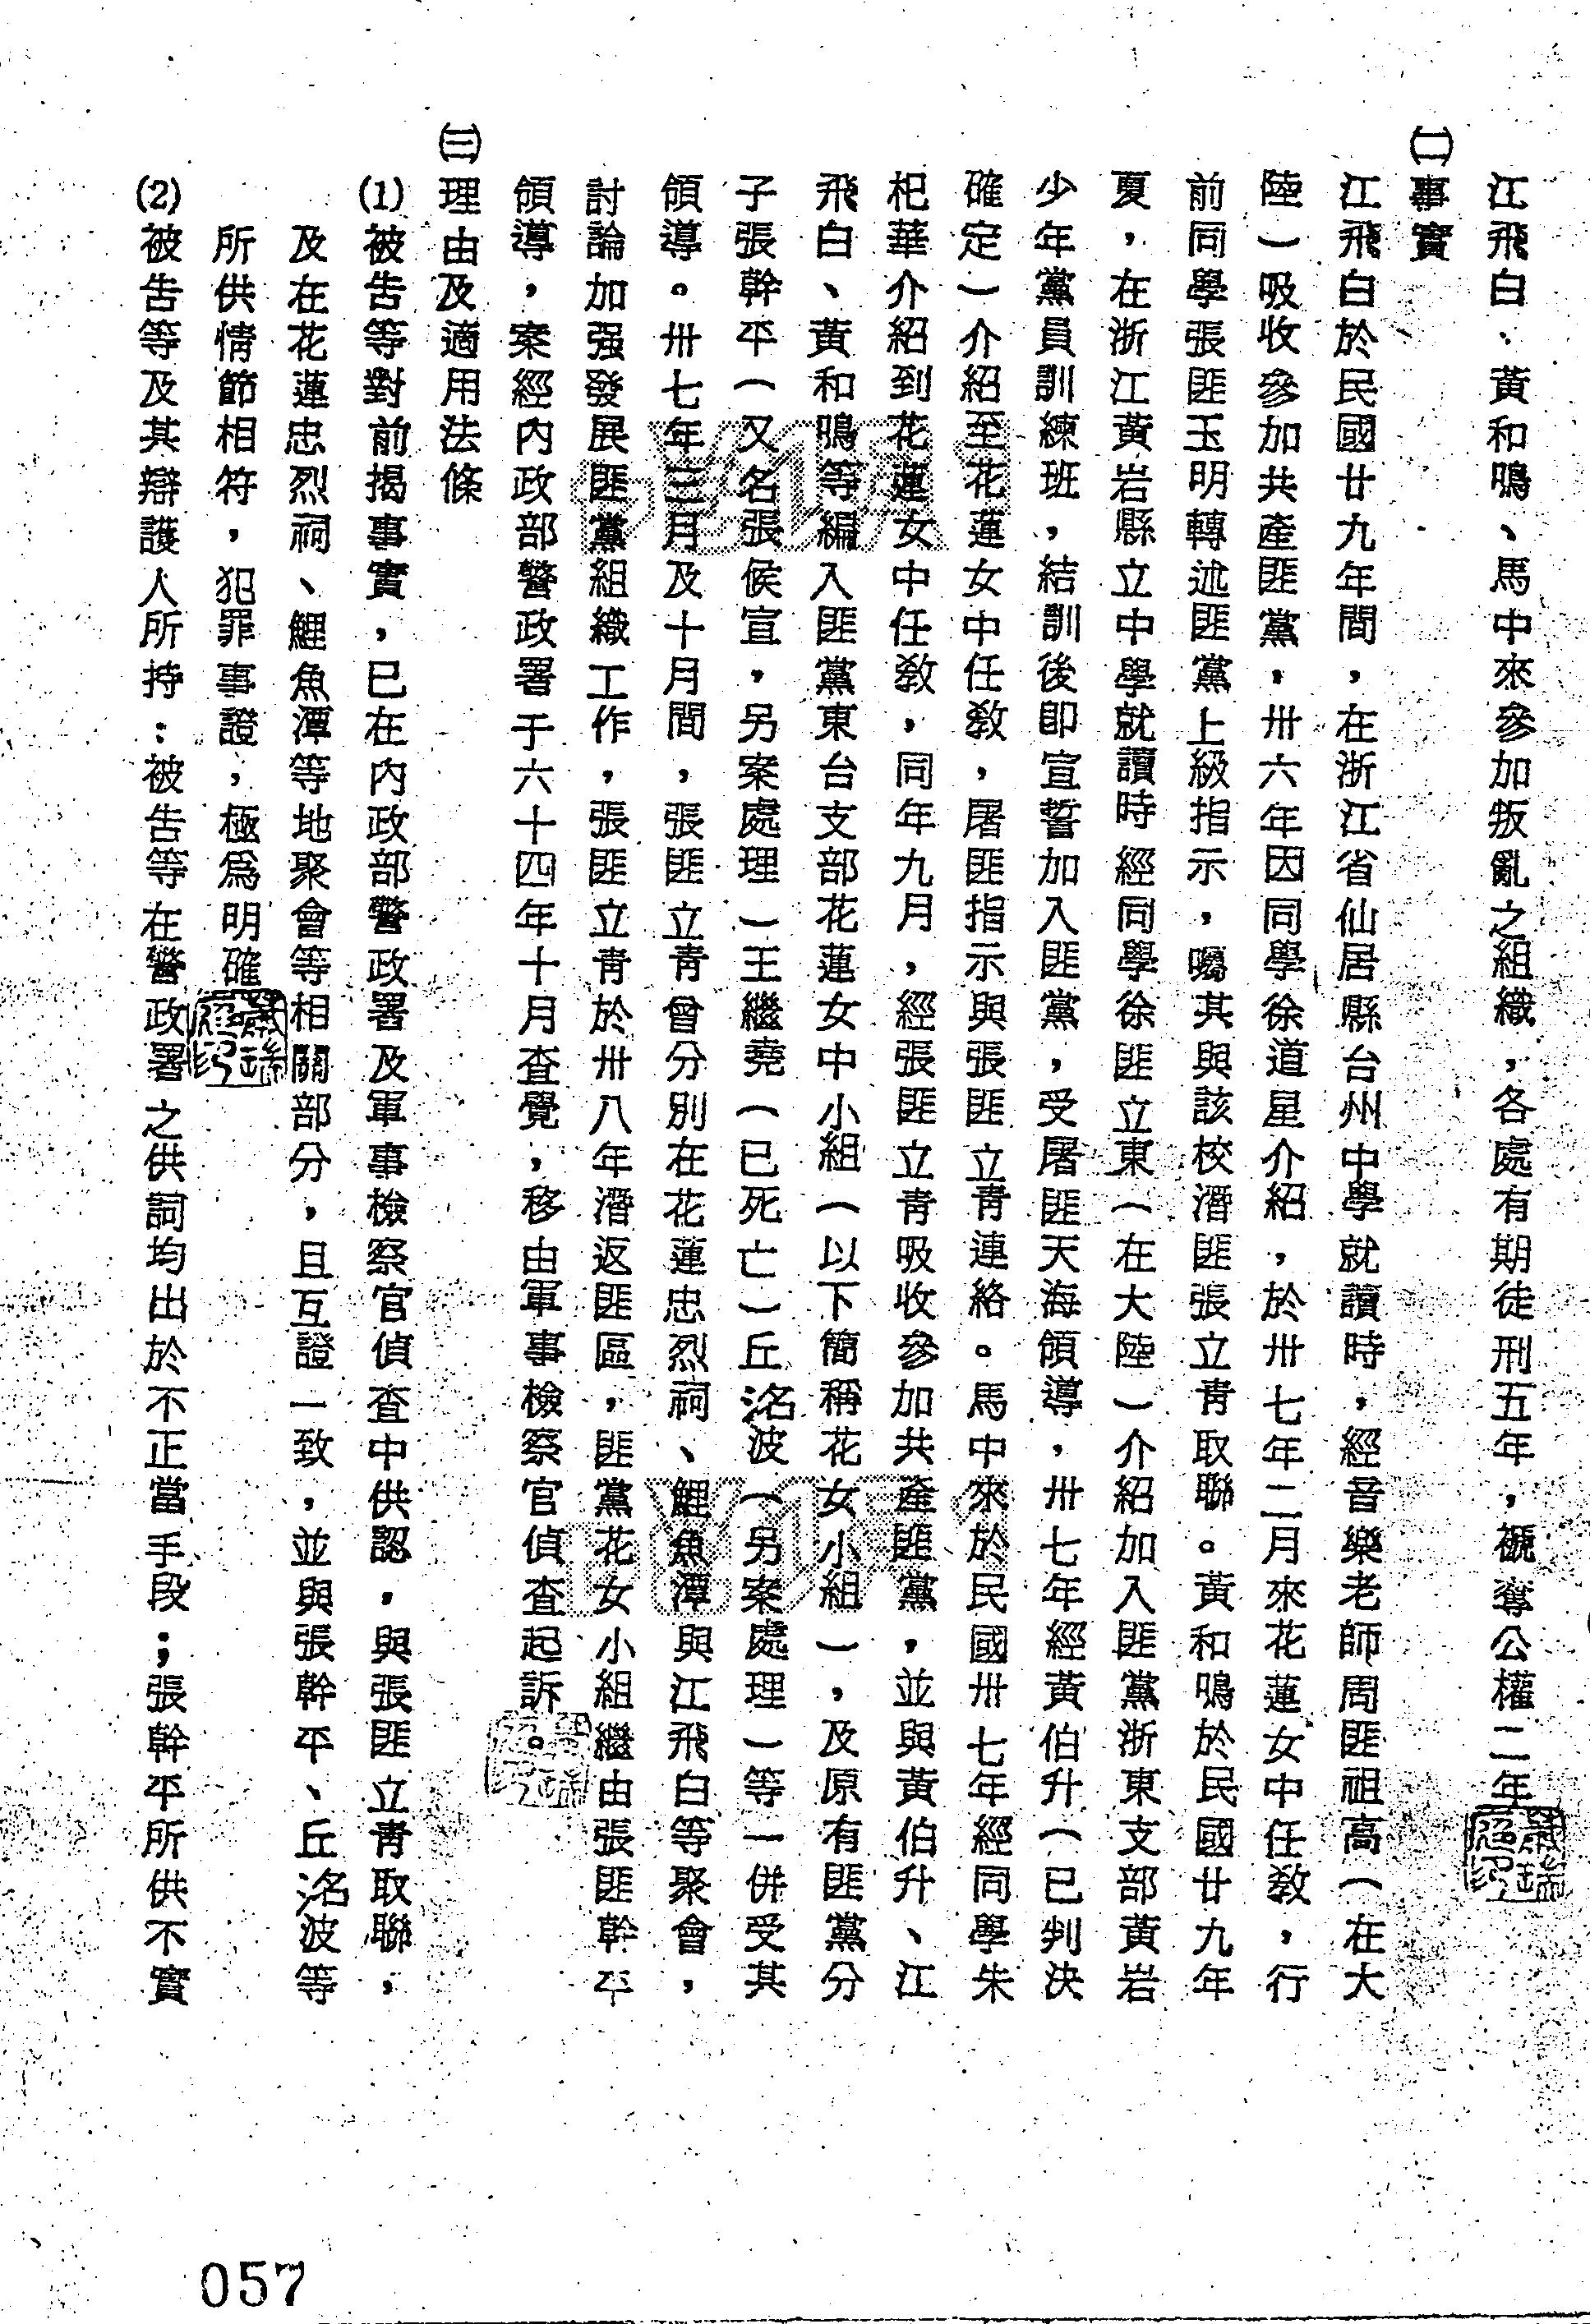 江飛白、黃和鳴、馬中來參加叛亂之組織，各處有期徒刑五年，褫奪公權二年
㈡事實
江飛白於民國廿九年間，在浙江省仙居縣台州中學就讀時，經音樂老師周匪祖高（在大
陸）吸收參加共產匪黨，卅六年因同學徐道星介紹，於卅七年二月來花蓮女中任教，行
前同學張匪玉明轉述匪黨上級指示，囑其與該校潛匪張立青取聯。黃和鳴於民國廿九年
夏，在浙江黃岩縣立中學就讀時經同學徐匪立東（在大陸）介紹加入匪黨浙東支部黃岩
少年黨員訓練班，結訓後即宣誓加入匪黨，受屠匪天海領導，卅七年經黃伯升（已判決
確定）介紹至花蓮女中任教，屠匪指示與張匪立青連絡。馬中來於民國卅七年經同學朱
杞華介紹到花蓮女中任教，同年九月，經張匪立青吸收參加共產匪黨，並與黃伯升、江
飛白、黃和鳴等編入匪黨東台支部花蓮女中小組（以下簡稱花女小組），及原有匪黨分
子張幹平（又名張侯宣，另案處理）王繼堯（已死亡）丘洺波（另案處理）等一併受其
領導。卅七年三月及十月間，張匪立青曾分別在花蓮忠烈祠、鯉魚潭與江飛白等聚會，
討論加强發展匪黨組織工作，張匪立青於卅八年潛返匪區，匪黨花女小組繼由張匪幹平
領導，案經內政部警政署于六十四年十月查覺，移由軍事檢察官偵查起訴。
㈢理由及適用法條
(1)被告等對前揭事實，已在內政部警政署及軍事檢察官偵查中供認，與張匪立青取聯，
及在花蓮忠烈祠、鯉魚潭等地聚會等相關部分，且互證一致，並與張幹平、丘洺波等
所供情節相符，犯罪事證，極爲明確
(2)被告等及其辯護人所持：被告等在警政署之供詞均出於不正當手段；張幹平所供不實
057